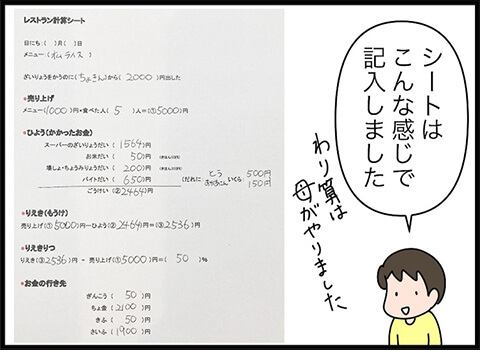 レストラン計算シート
日にち：(　)月(　)日
メニュー：(オムライス)
ざいりょうをかうのに(ちょきん)から(2000)円出した
●売り上げ
メニュー(1000)円×食べた人(5)人=(①5000)円
●ひよう(かかったお金)
スーパーのざいりょうだい(1564)円
お米だい(50)円
場しょ・ちょうみりょうだい(200)円
バイトだい(650)円 (だれに とう いくら 500円
150円
ごうけい(②2464)円
●りえき(もうけ)
売り上げ(①5000)円ーひよう(②2464)円=(③2536)円
●りえきりつ
りえき(③2536)円 ÷ 売り上げ(①5000)円=(50)%
●お金の行き先
ぎんこう(50)円
ちょ金(2100)円
きふ(50)円
さいふ(1900)円
シートは
こんな感じで
記入しました
わり算は
母がやりました